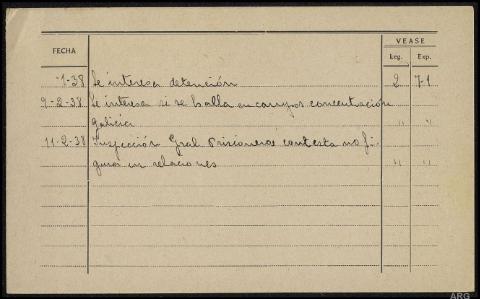 VEASE
FECHA Leg. Exp.
-1-38 Se interesa detención 2 71
9-2-38 Se interesa si se halla en campos concentración
Galicia " "
11-2-38 Inspección Gral Prisioneros contesta no fi-
gura en relaciones " "
ARG